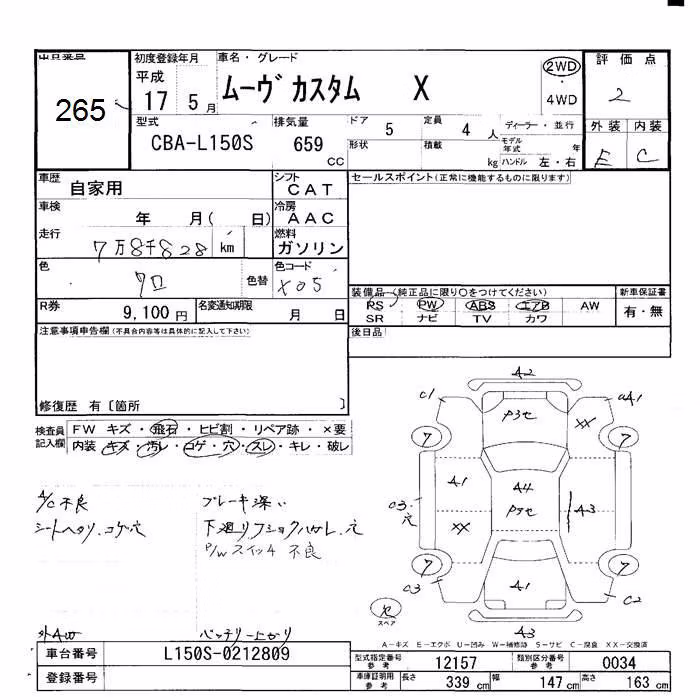 出品番号 初度登録年月 車名・グレード 評価点
265 平成 17 5月 ムーヴ カスタム X 2WD・4WD 2
型式 排気量 ドア 定員 ディーラー・並行 外装 内装
CBA-L150S 659 CC 5 4人 モデル年式 年 E C
形状 積載 kg ハンドル 左・右
車歴 自家用 シフト CAT セールスポイント(正常に機能するものに限ります)
車検 年 月( 日) 冷房 AAC
走行 7万8千828 km 燃料 ガソリン
色 クロ 色替 色コード X05
装備品 (純正品に限り○をつけてください) 新車保証書
R券 9,100円 名変通知期限 月 日 PS PW ABS エアB AW 有・無
SR ナビ TV カワ
注意事項申告欄(不具合内容等は具体的に記入して下さい) 後日品
修復歴 有〔箇所 〕
検査員記入欄 FW キズ・飛石・ヒビ割・リペア跡・×要
内装・キズ・汚レ・コゲ・穴・スレ・キレ・破レ
A2
C1 P3セ XX A1
7 7
A1 A4 A3
C3.穴 XX P3セ
7 7
C3 A1 C2
セ スペア
A3
A/C 不良 ブレーキ深い
シートヘタリ、コゲ穴 下廻りフショクハカレ、穴
P/Wスイッチ 不良
外AW バッテリー上がり
A-キズ E-エクボ U-凹み W-補修跡 S-サビ C-腐食 XX-交換済
車台番号 L150S-0212809 型式指定番号 参考 12157 類別区分番号 参考 0034
登録番号 車庫証明用 参考 長さ 339 cm 幅 147 cm 高さ 163 cm